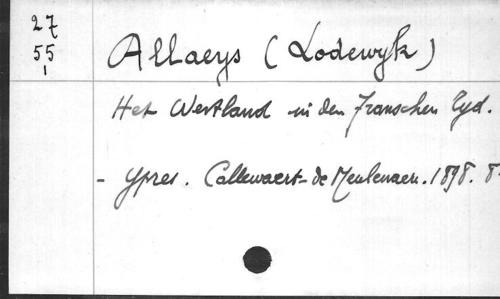 27
55
1
Allaeys (Lodewyk)
Het Westland in den Franschen Tyd.
- Ypres. Callewaert-de Meulenaere. 1898. 8